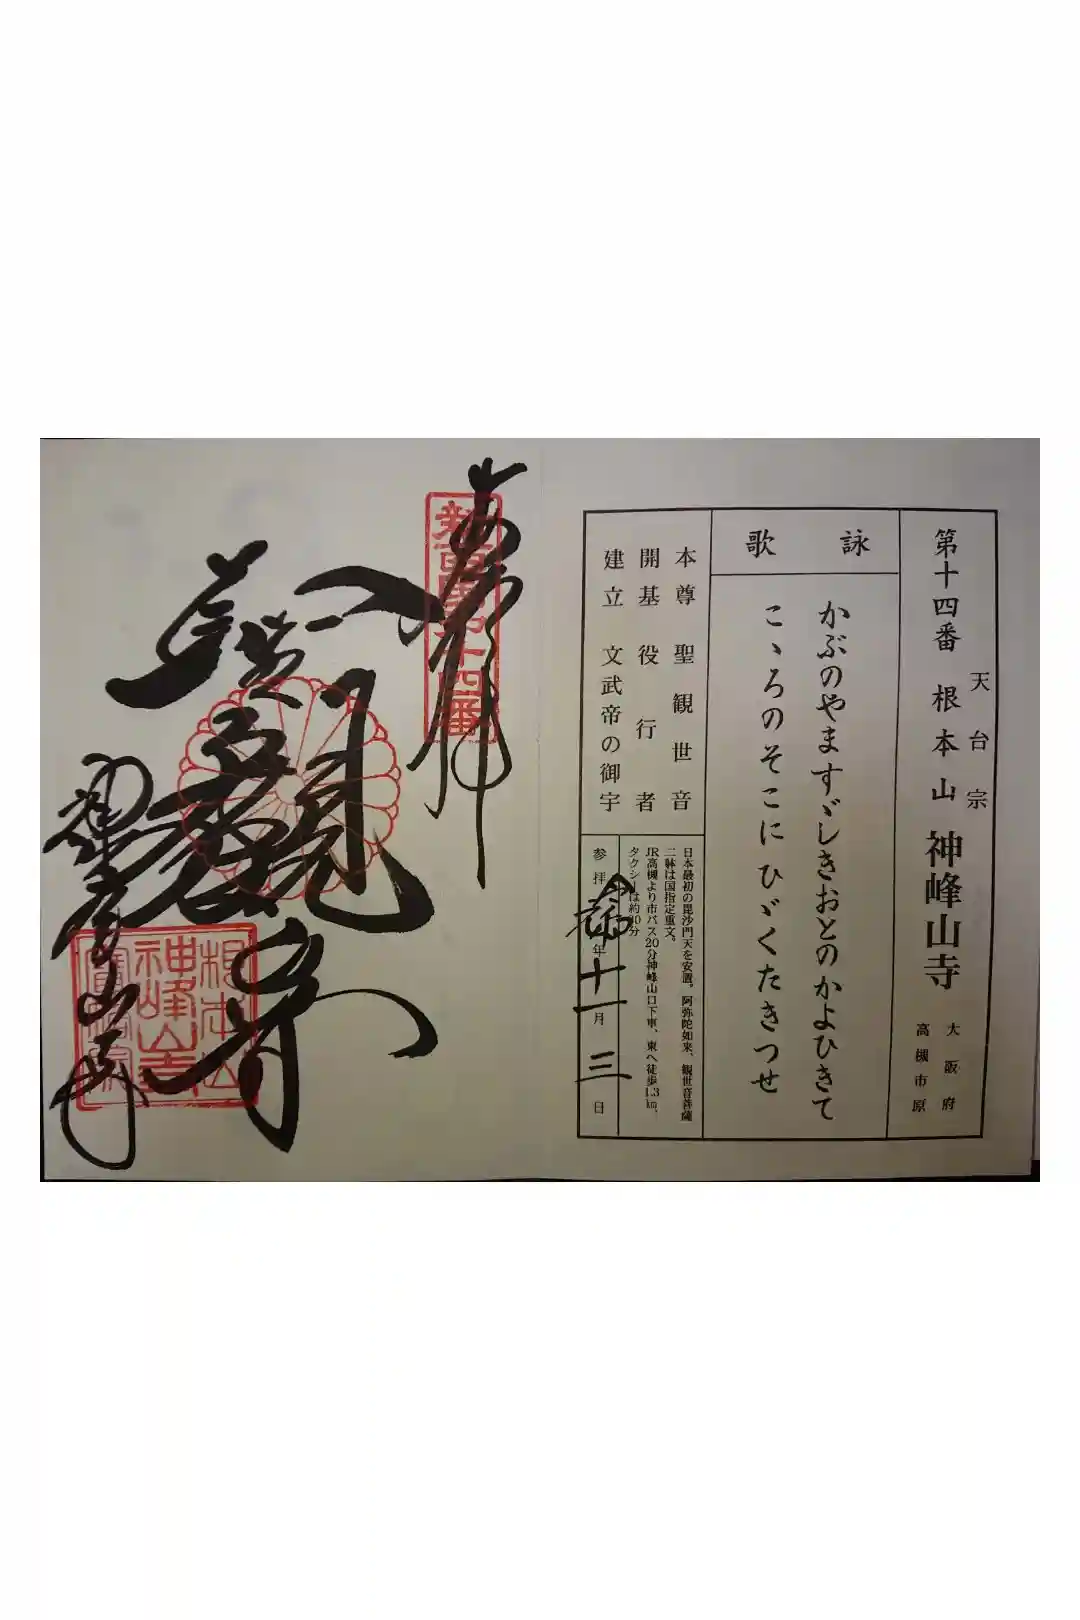 第十四番 根本山 神峰山寺
天台宗
大阪府
高槻市原
詠歌
かぶのやますゞしきおとのかよひきて
こゝろのそこにひゞくたきつせ
本尊 聖観世音
開基 役行者
建立 文武帝の御宇
日本最初の毘沙門天を安置。阿弥陀如来、観世音菩薩
二躰は国指定重文。
JR高槻より市バス20分神峰山口下車、東へ徒歩1.3㎞、
タクシーは約10分
参拝 令和 年 十一月 三日
奉拝
新西国第十四番
神峰山寺
根本山
神峰山寺